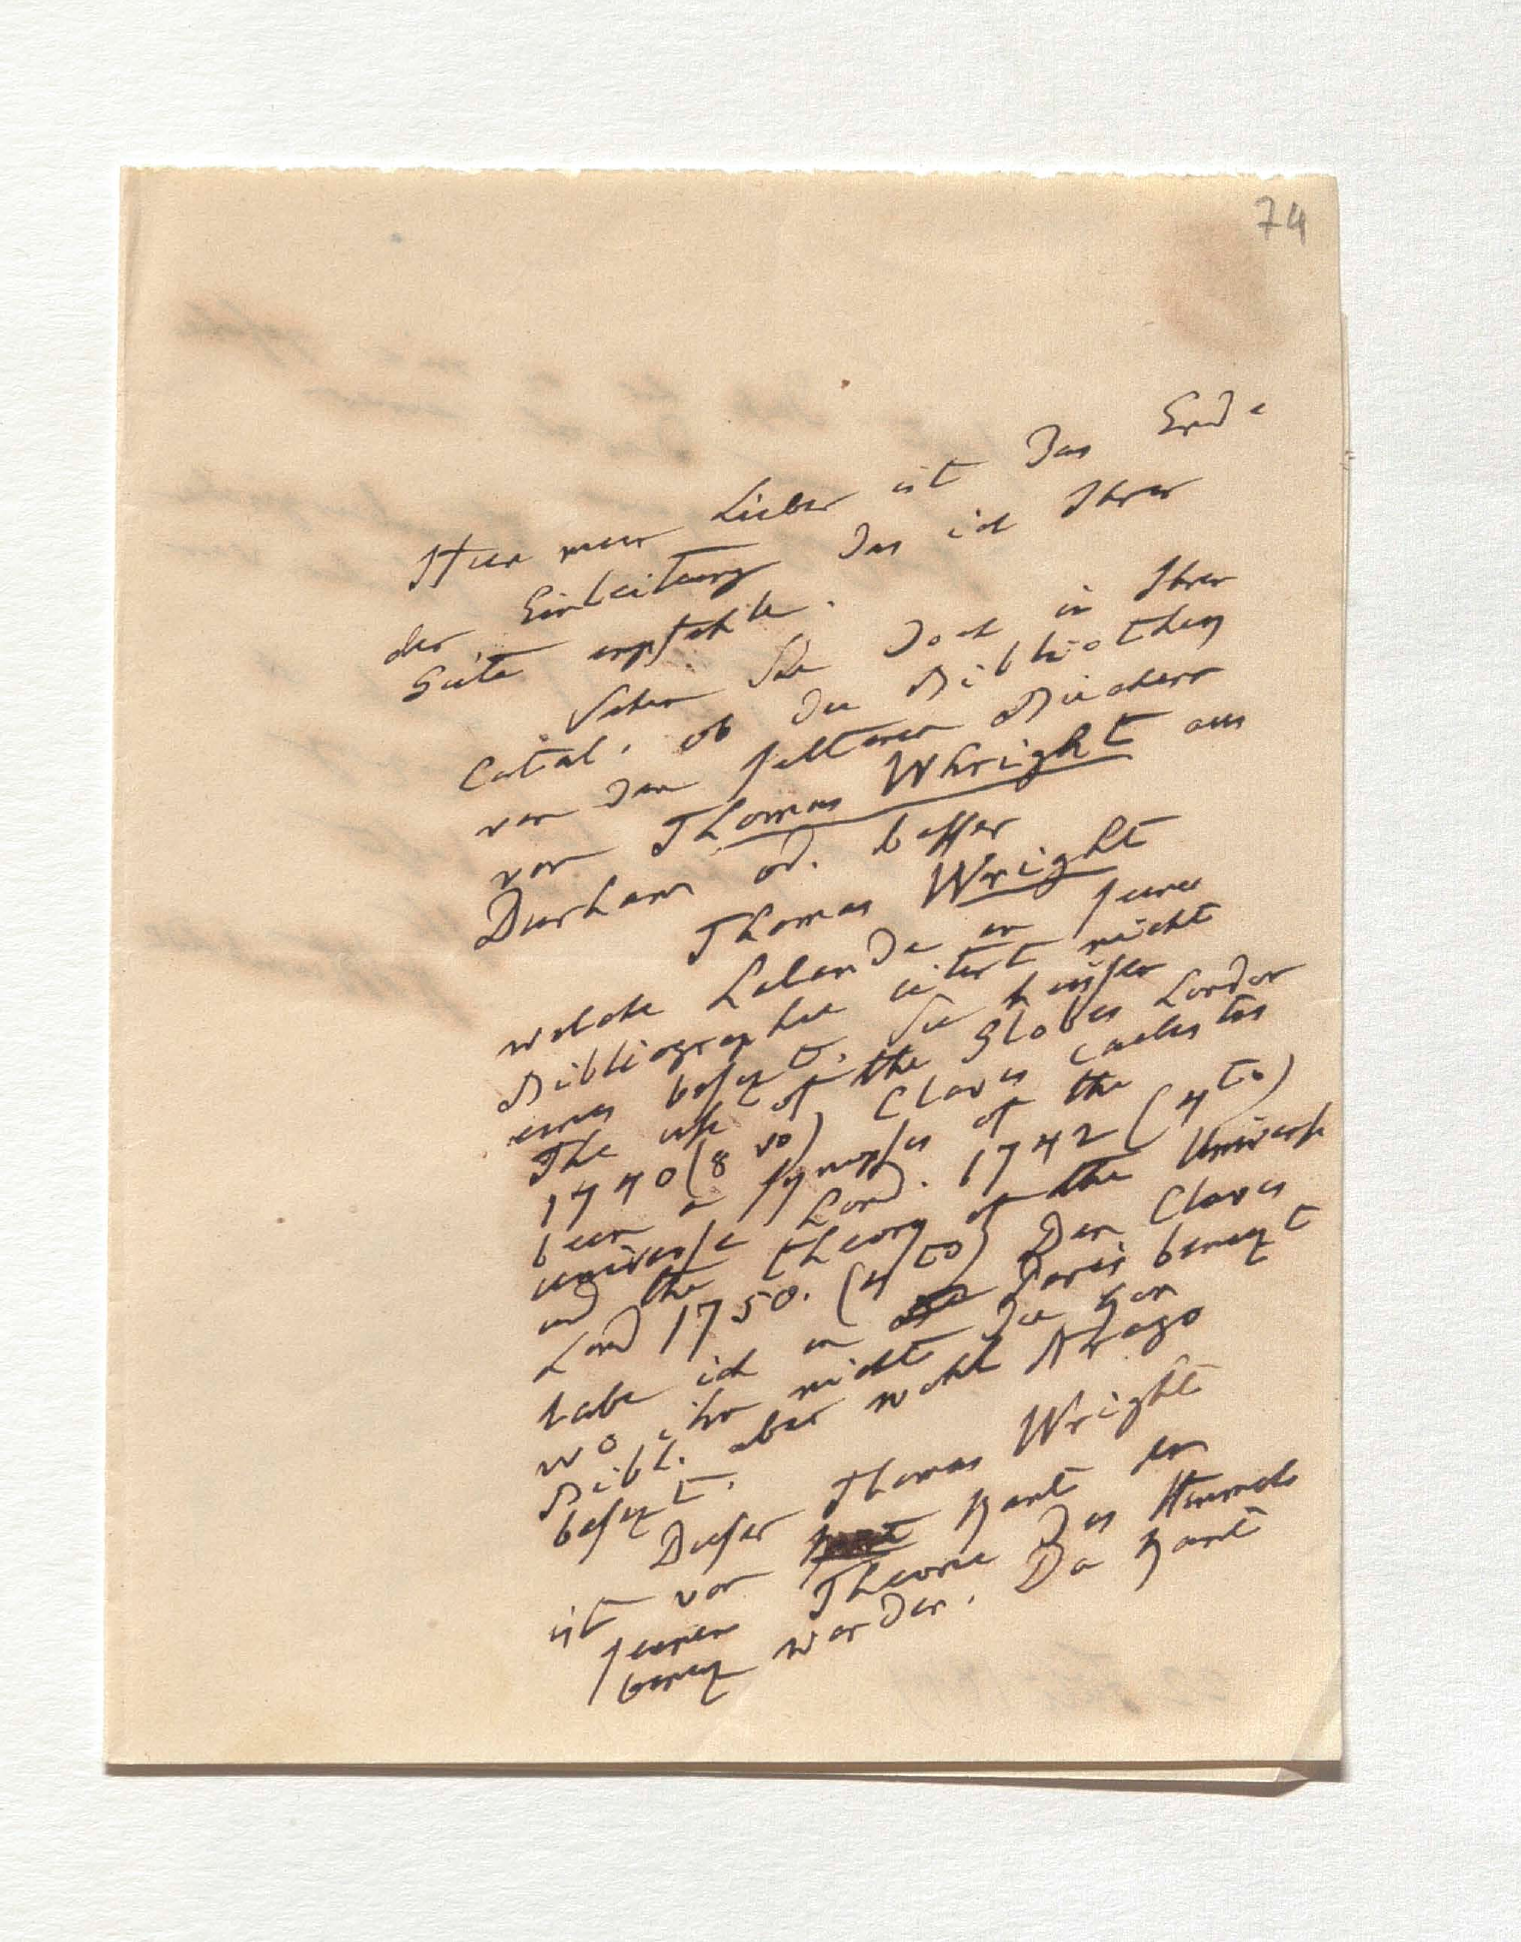 74
Hier mein Lieber ist das Ende
der Einleitung das ich Ihrer
Güte empfehle.
Sehen Sie doch in Ihrem
Catal. ob die Bibliothek
von den seltenen Büchern
von Thomas Whright aus
Durham od. besser
Thomas Wright
welche Lalande in seiner
Bibliographie citirt nicht
eines besizt. Sie heissen
The use of the Globes London
1740 (8vo) Clavis caelestis
being a synopsis of the
universe Lond. 1742 (4to)
und the theory of the Universe
Lond 1750. (4to) Den Clavis
habe ich in Paris benuzt
wo ihn nicht die kön
Bibl. aber wohl Arago
besizt.
Dieser Thomas Wright
ist von Kant in
seiner Theorie des Himmels
benuzt worden. Da Kant